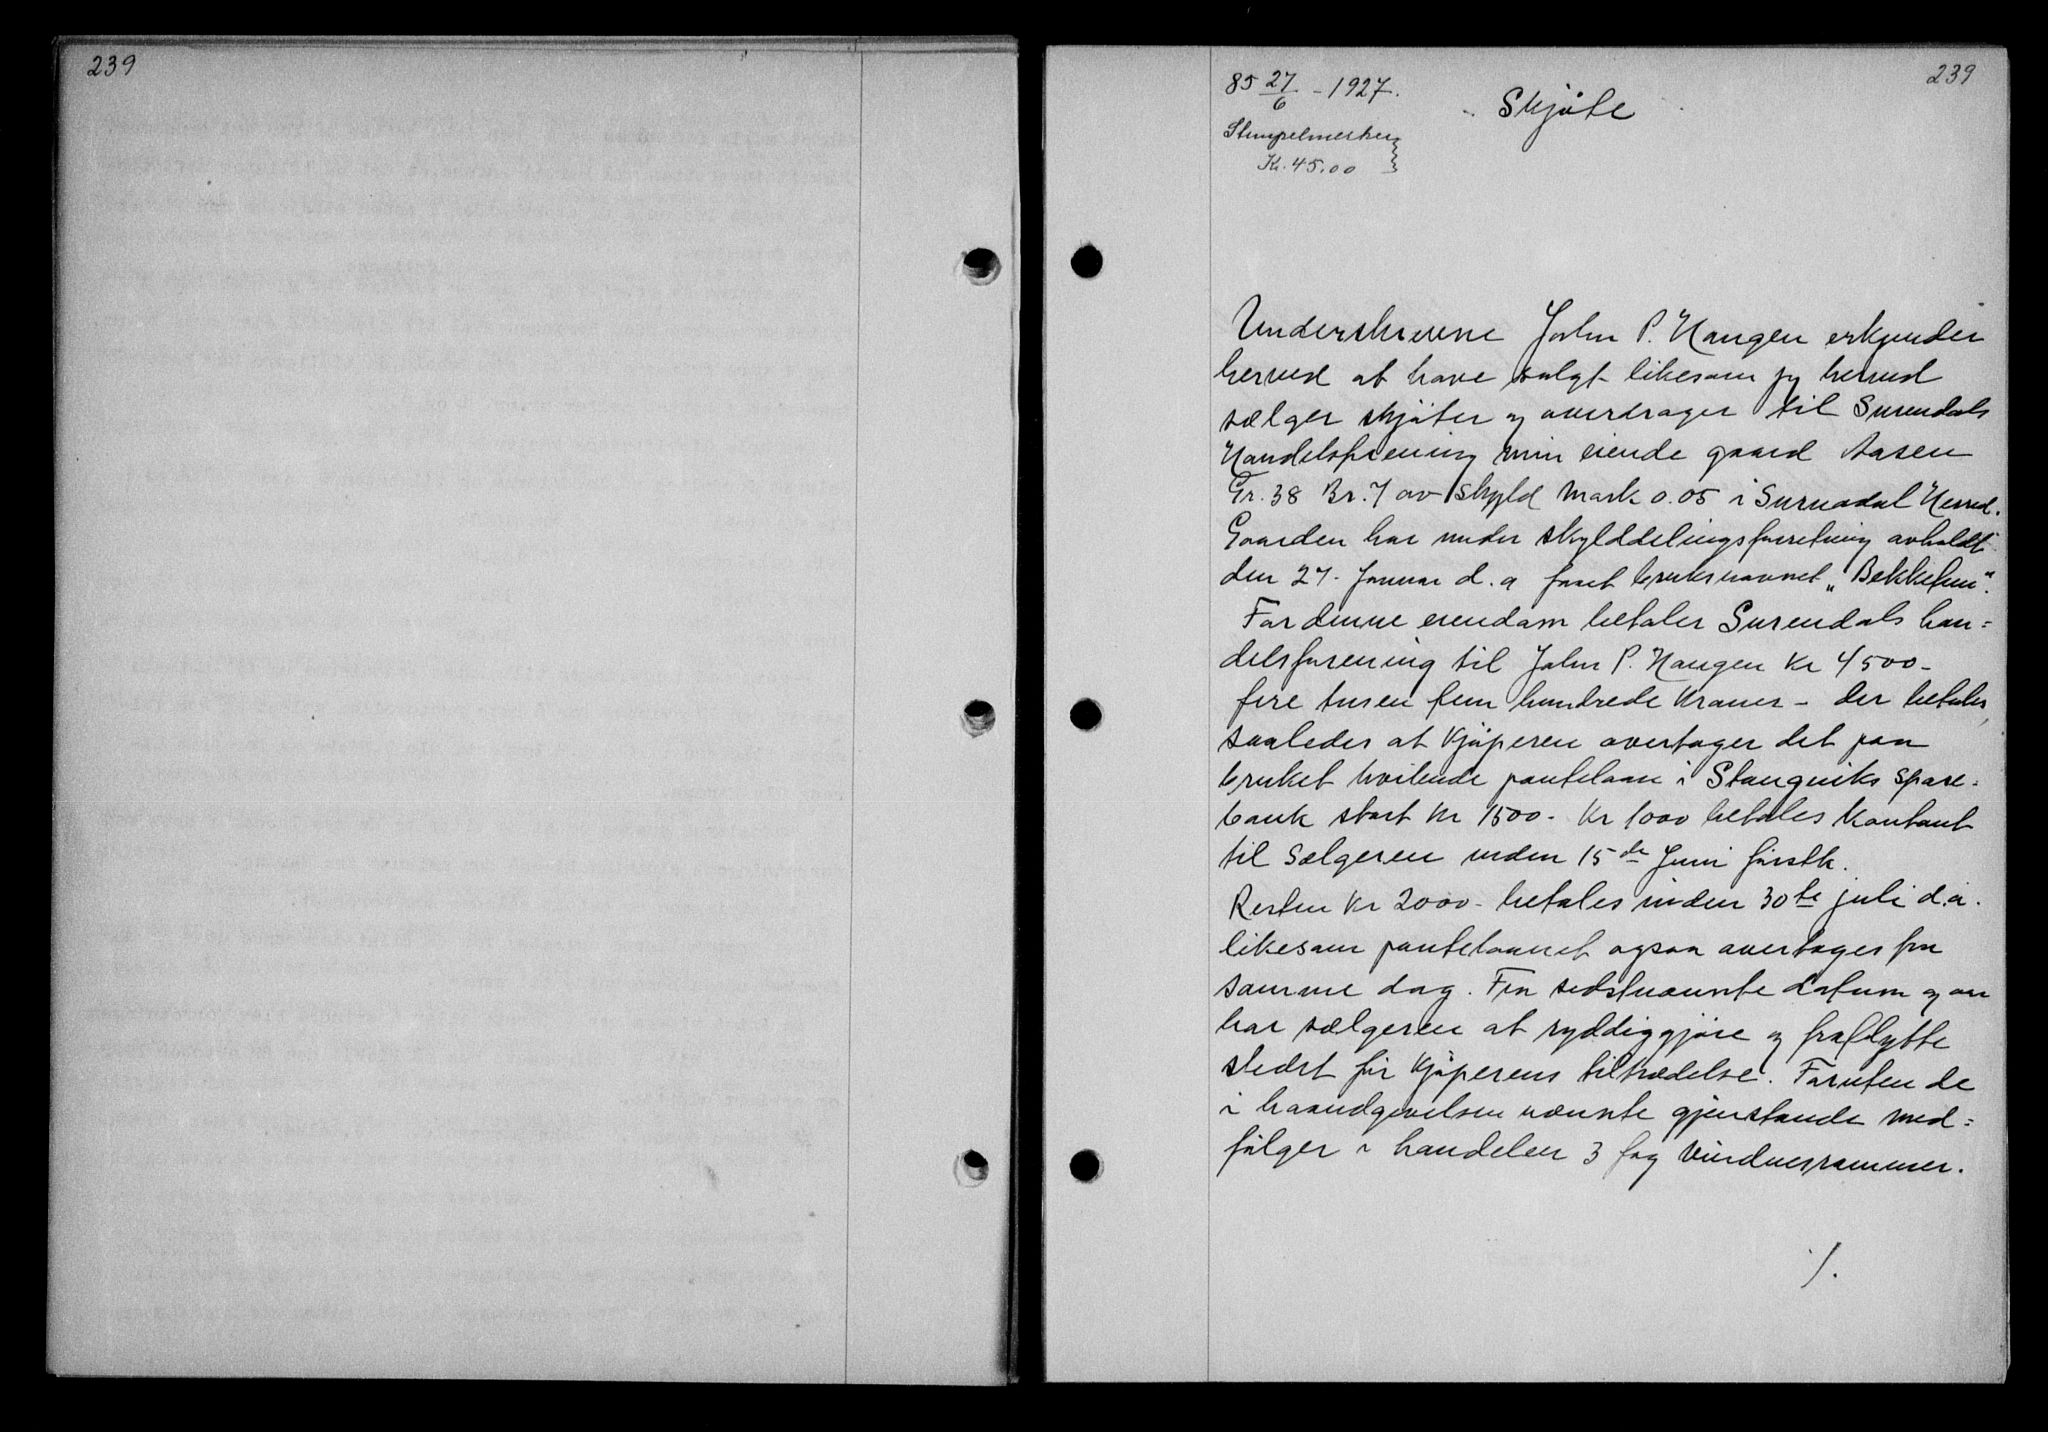 239
239
85 27/6 - 1927.
Skjøte
Stempelmerker
Kr. 45.00
Underskrevne John P. Haugen erkjender
herved at have solgt likesom jeg herved
sælger skjøter og overdrager til Surendals
Handelsforening min eiende gaard Aasen
Gr. 38 Br. 7 av Skyld Mark 0.05 i Surnadal Herred.
Gaarden har under skylddelingsforretning avholdt
den 27. Januar d.a faaet bruksnavnet "Bekkefun".
For denne eiendom betaler Surendals han=
delsforening til John P. Haugen Kr 4500-
fire tusen fem hundrede Kroner - der betales
saaledes at Kjøperen overtager det paa
bruket hvilende pantelaan i Stangviks Spare=
bank stort Kr 1500- Kr 1000 betales Kontant
til Sælgeren inden 15de Juni førstk.
Resten Kr 2000- betales inden 30te juli d.a.
likesom pantelaanet ogsaa overtages fra
samme dag. Fra sidstnævnte datum og an
har sælgeren at ryddiggjøre og fraflytte
stedet for Kjøperens tiltrædelse. Foruten de
i haandgivelsen nævnte gjenstande med=
følger i handelen 3 fag Vinduesrammer.
/.